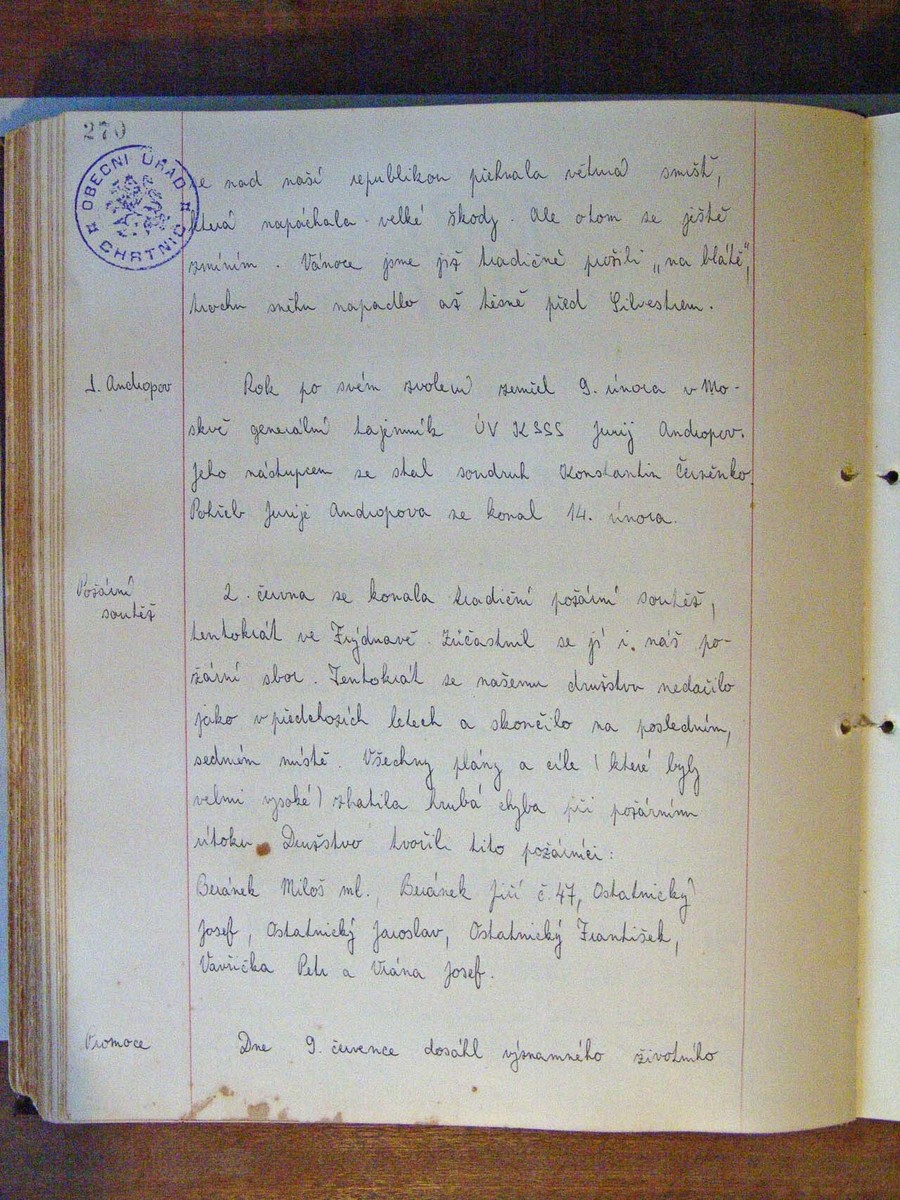 270
OBECNÍ ÚŘAD
CHRTNÍČ
se nad naší republikou přehnala větrná smršť,
která napáchala velké škody. Ale otom se ještě
zmíním. Vánoce jsme již tradičně prožili „na blátě",
trochu sněhu napadlo až těsně před Silvestrem.
J. Andropov
Rok po svém zvolení zemřel 9. února v Mo-
skvě generální tajemník ÚV KSSS Jurij Andropov.
Jeho nástupcem se stal soudruh Konstantin Černěnko
Pohřeb Jurije Andropova se konal 14. února.
Požární
soutěž
2. června se konala tradiční požární soutěž,
tentokrát ve Frýdnavě. Zúčastnil se jí i náš po-
žární sbor. Tentokrát se našemu družstvu nedařilo
jako v předchozích letech a skončilo na posledním,
sedmém místě. Všechny plány a cíle (které byly
velmi vysoké) zhatila hrubá chyba při požárním
útoku. Družstvo tvořili tito požárníci:
Beránek Miloš ml., Beránek Jiří č. 47, Ostatnický
Josef, Ostatnický Jaroslav, Ostatnický František,
Vavřička Petr a Vrána Josef.
Promoce
Dne 9. července dosáhl významného životního